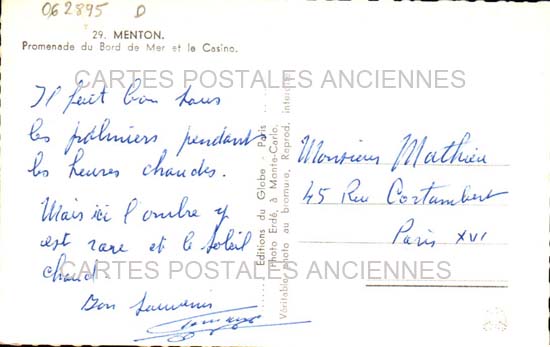 062895 D
29. MENTON.
Promenade du Bord de Mer et le Casino.
CARTES POSTALES ANCIENNES
Il fait bon sous
les palmiers pendant
les heures chaudes.
Mais ici l'ombre y
est rare et le soleil
chaud.
Bon souvenir
Editions du Globe - Paris
Photo Erdé, à Monte-Carlo.
Véritable photo au bromure, Reprod. interdite
Monsieur Mathieu
45 Rue Cortambert
Paris XVI
CARTES POSTALES ANCIENNES